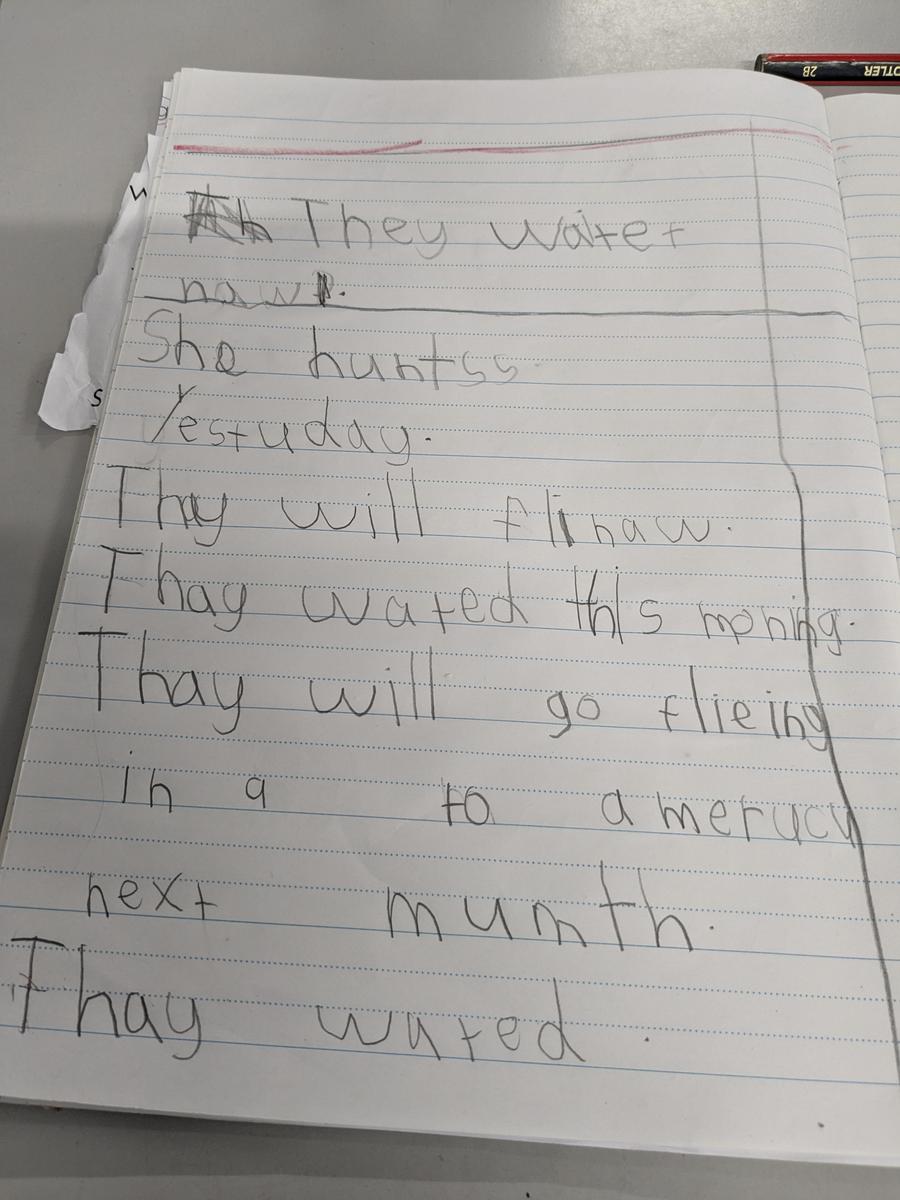 They waitet
naw.
She huntss
Yestuday.
Thay will fli naw.
Thay wated this moning.
Thay will go flieing
in a to amerucu
next munth.
Thay wated.
2B